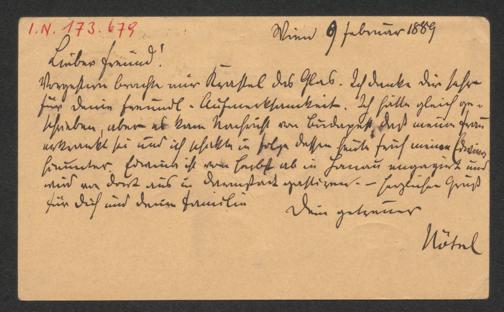 I.N. 173.679
Wien 9 Februar 1889
Lieber Freund!
Vorgestern brachte mir Krastel das Glas. Ich danke dir sehr
für deine freundl. Aufmerksamkeit. Ich hätte gleich ge-
schrieben, aber es kam Nachricht von Budapest, daß meine Frau
erkrankt sei und ich schickte in Folge dessen heute früh meinen
hinunter. ist von Herbst ab in Hanau engagirt und
wird von dort aus in Darmstadt gastiren. – herzlichen Gruß
für Dich und deine Familie
Dein getreuer
Nötel